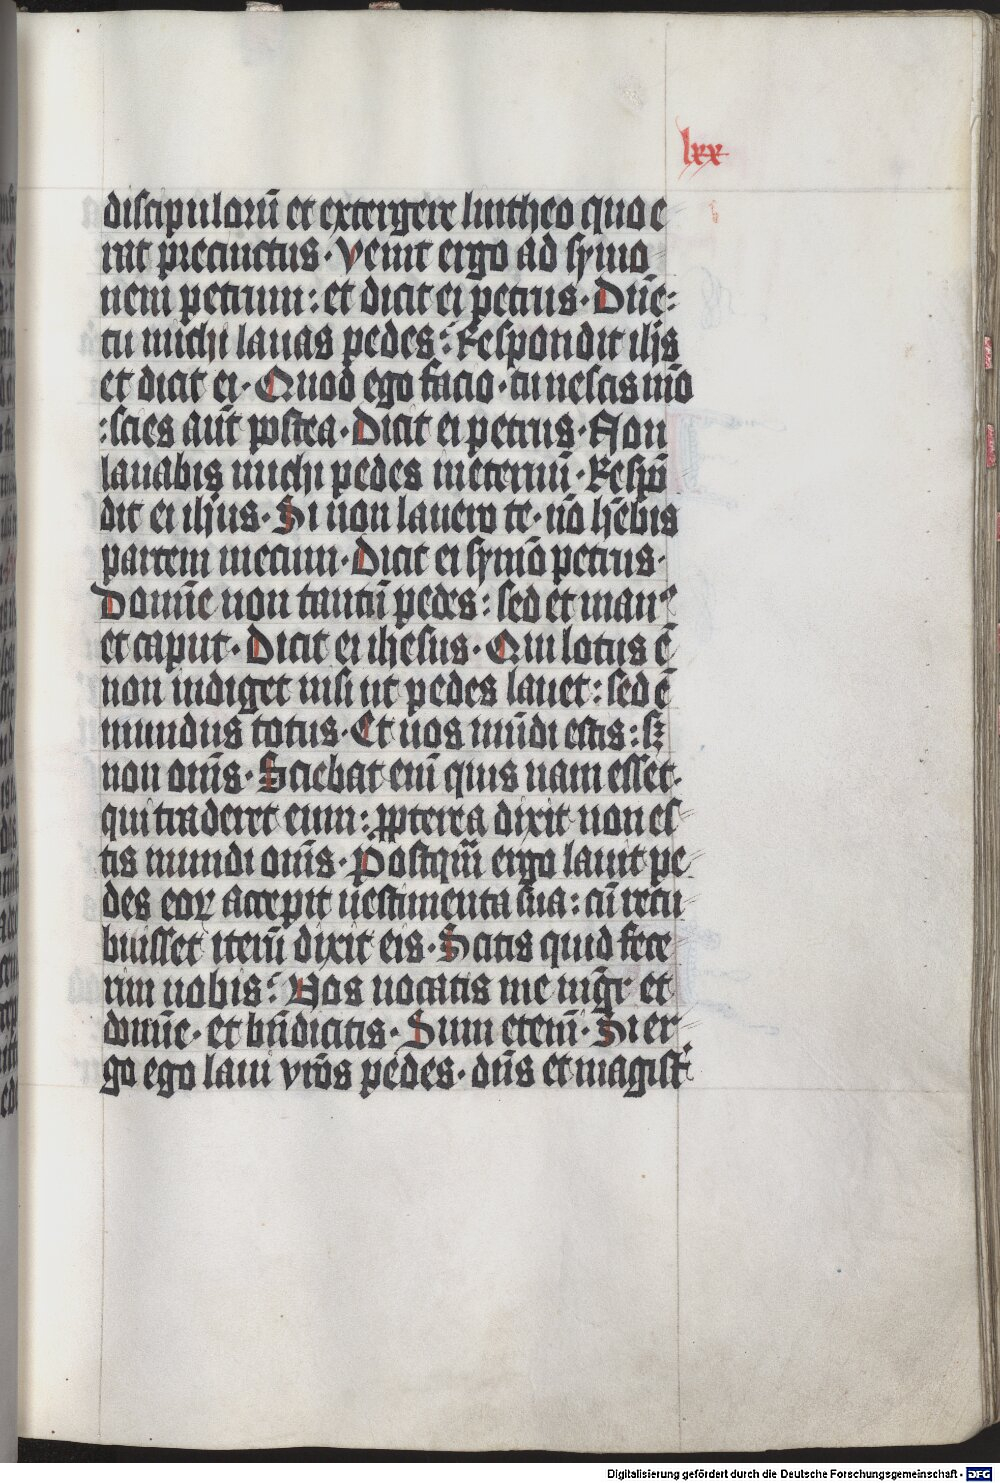 lxx
discipuloru̅ et extergere lintheo quo e
rat precinctus · Venit ergo ad symo
nem petrum : et dicit ei petrus · Dn̅e :
tu michi lauas pedes : Respondit ih̅s
et dicit ei · Quod ego facio · tu nescis mo̅
: scies aut̅ postea · Dicit ei petrus · Non
lauabis michi pedes ineternu̅ · Respo̅
dit ei ih̅us · Si non lauero te · no̅ he̅bis
partem mecum · Dicit ei symo̅ petrus ·
Domin̅e non tantu̅ pedes : sed et manꝰ
et caput · Dicit ei ihesus · Qui lotus e̅
non indiget nisi ut pedes lauet : sed e̅
mundus totus · Et uos mu̅di estis : sꝫ
non om̅s · Sciebat eni̅ quis nam esset ·
qui traderet eum : ꝓpterea dixit non es
tis mundi om̅s · Postqua̅ ergo lauit pe
des eoꝝ accepit uestimenta sua : cu̅ recu
buisset iteru̅ dixit eis · Scitis quid fece
rim uobis : Vos uocatis me mg̅r et
domin̅e · et bn̅dicitis · Sum eteni̅ · Si er
go ego laui vr̅os pedes · dn̅s et magist̛
Digitalisierung gefördert durch die Deutsche Forschungsgemeinschaft - DFG